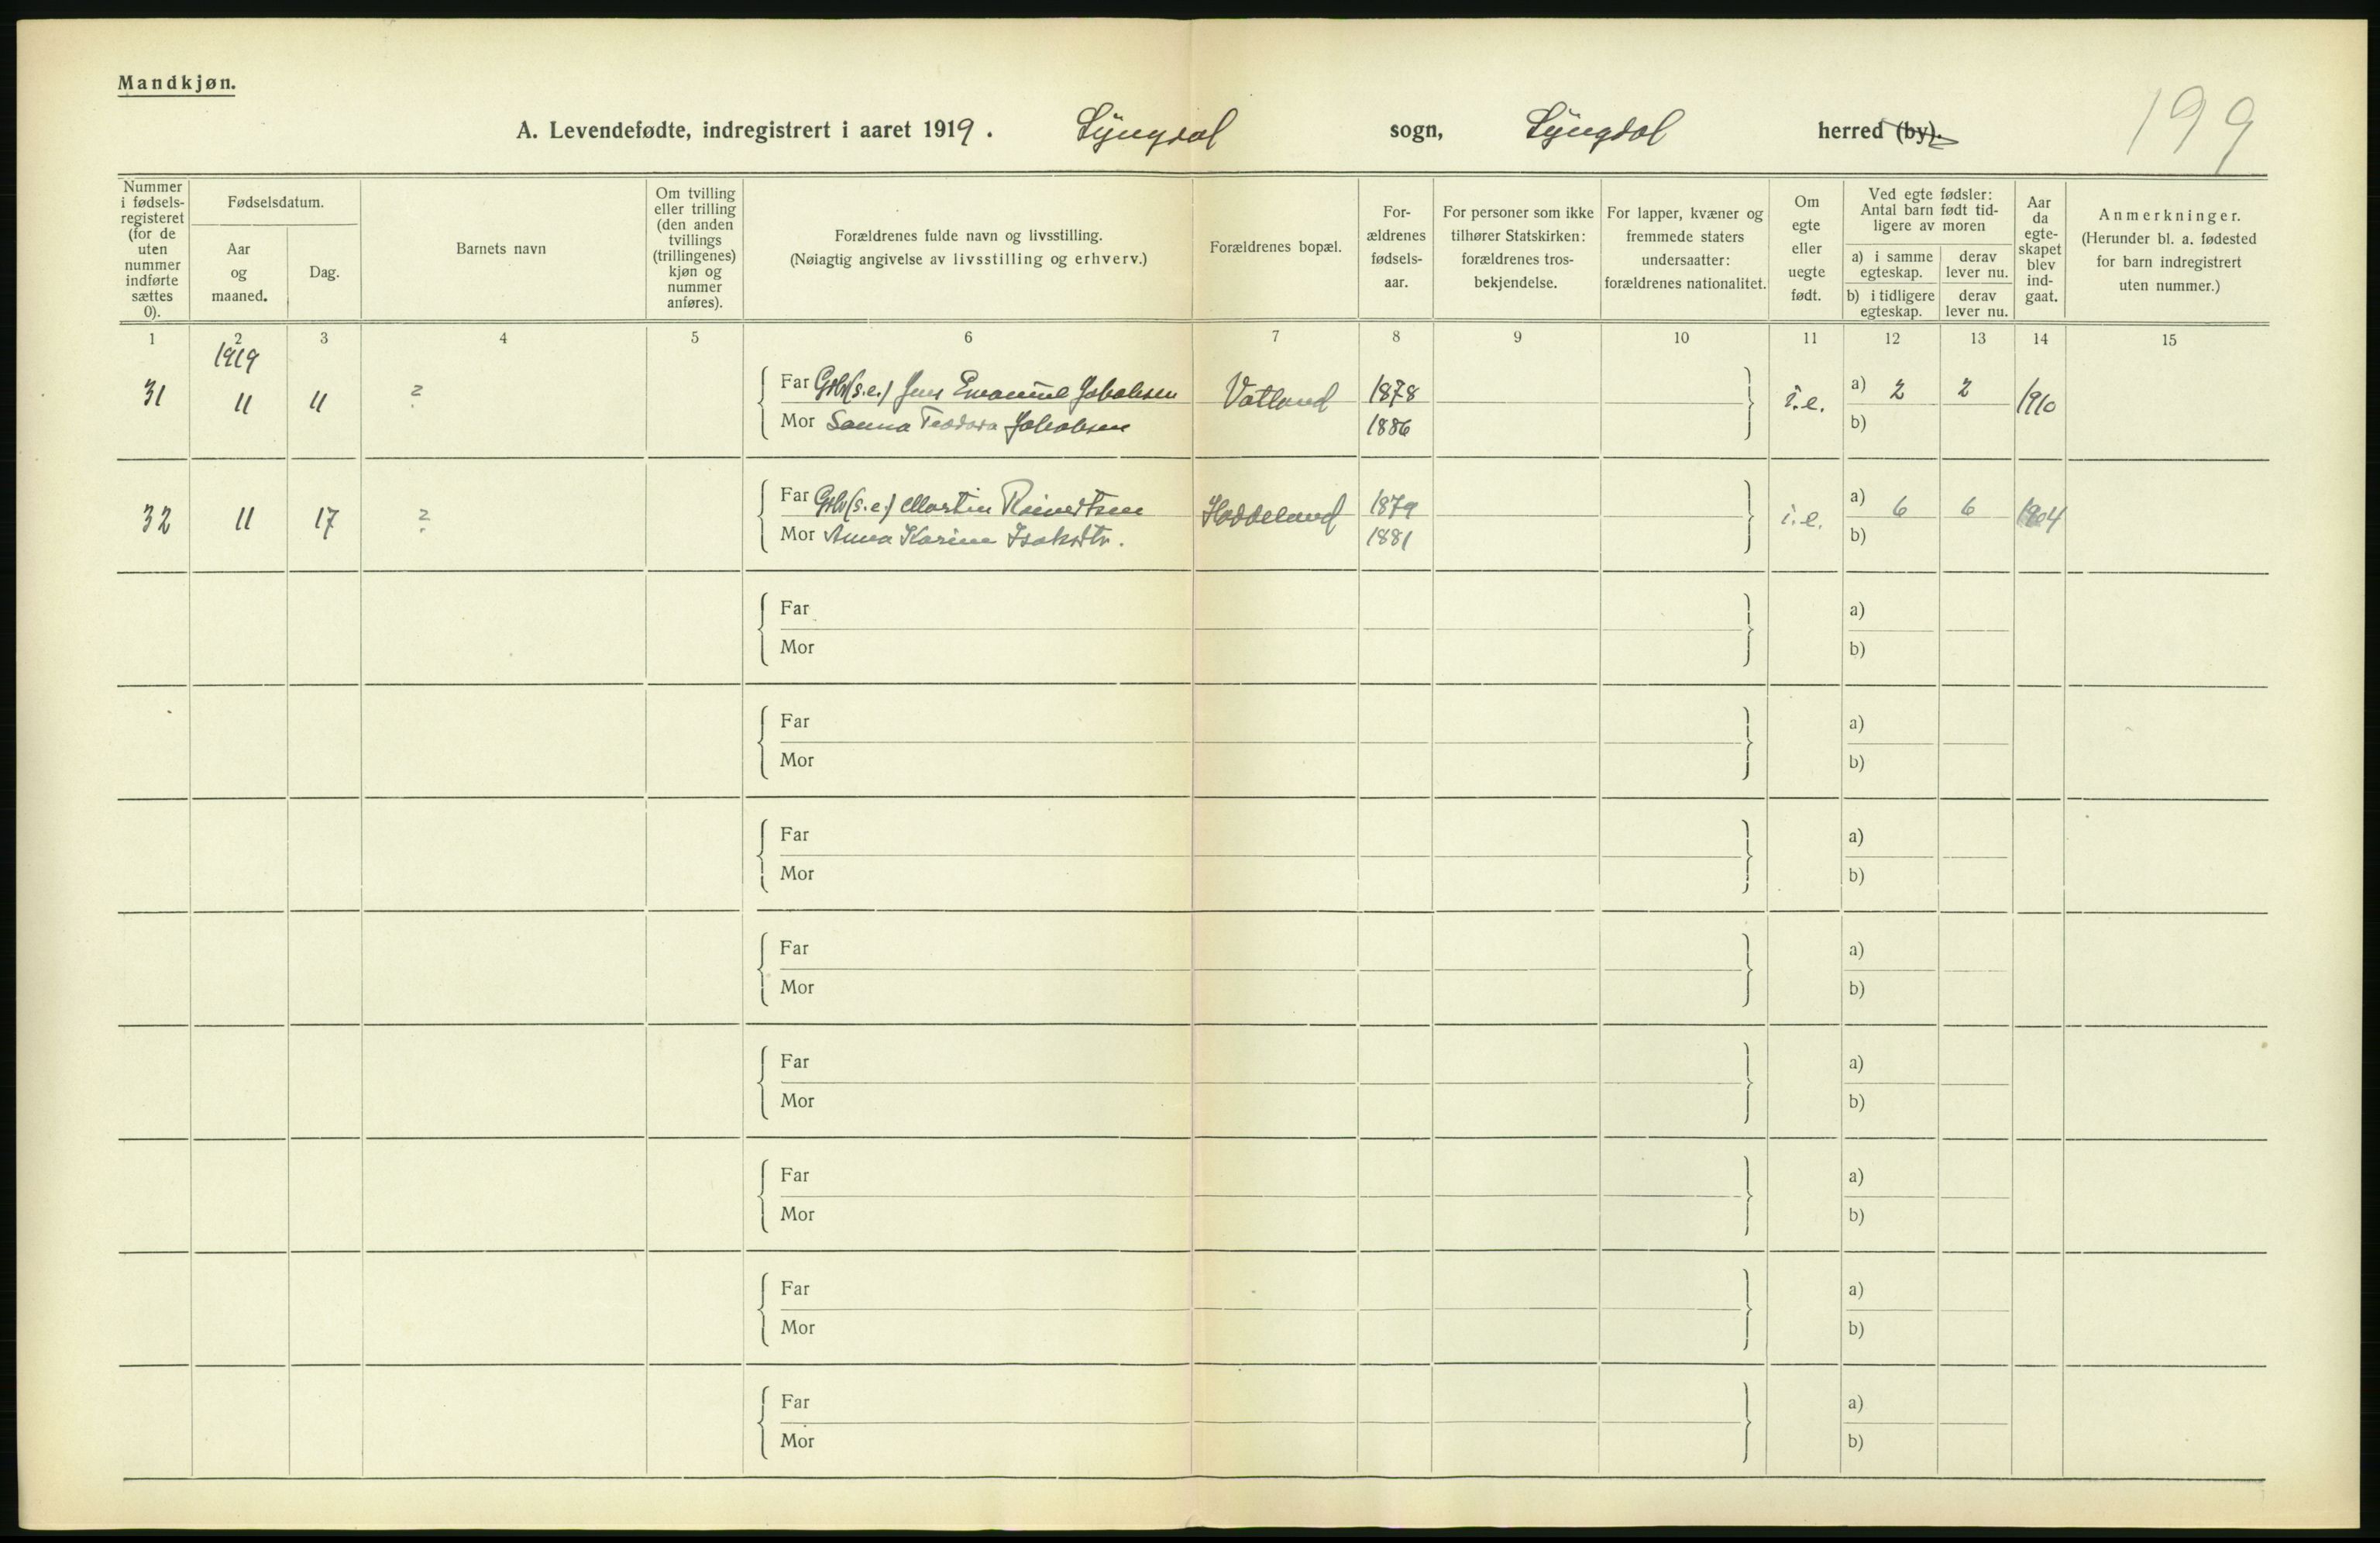 Mandkjøn.
199
A. Levendefødte, indregistrert i aaret 1919. Lyngdal sogn, Lyngdal herred (by).
Nummer i fødsels-registeret (for de uten nummer indførte sættes 0).
Fødselsdatum.
Aar og maaned.
Dag.
Barnets navn
Om tvilling eller trilling (den anden tvillings (trillingenes) kjøn og nummer anføres).
Forældrenes fulde navn og livsstilling.
(Nøiagtig angivelse av livsstilling og erhverv.)
Forældrenes bopæl.
For-ældrenes fødsels-aar.
For personer som ikke tilhører Statskirken: forældrenes tros-bekjendelse.
For lapper, kvæner og fremmede staters undersaatter: forældrenes nationalitet.
Om egte eller uegte født.
Ved egte fødsler: Antal barn født tid-ligere av moren
a) i samme egteskap.
derav lever nu.
b) i tidligere egteskap.
derav lever nu.
Aar da egte-skapet blev ind-gaat.
Anmerkninger.
(Herunder bl. a. fødested for barn indregistrert uten nummer.)
1 2 3 4 5 6 7 8 9 10 11 12 13 14 15
1919
31 11 11 ? Far Grbr (s.e.) Jens Emanuel Jakobsen Vatland 1878 i.e. a) 2 2 1910
Mor Sanna Teodora Jakobsen 1886 b)
32 11 17 ? Far Grbr (s.e.) Martin Reinertsen Haddeland 1879 i.e. a) 6 6 1904
Mor Anna Karine Isaksdtr. 1881 b)
Far a)
Mor b)
Far a)
Mor b)
Far a)
Mor b)
Far a)
Mor b)
Far a)
Mor b)
Far a)
Mor b)
Far a)
Mor b)
Far a)
Mor b)